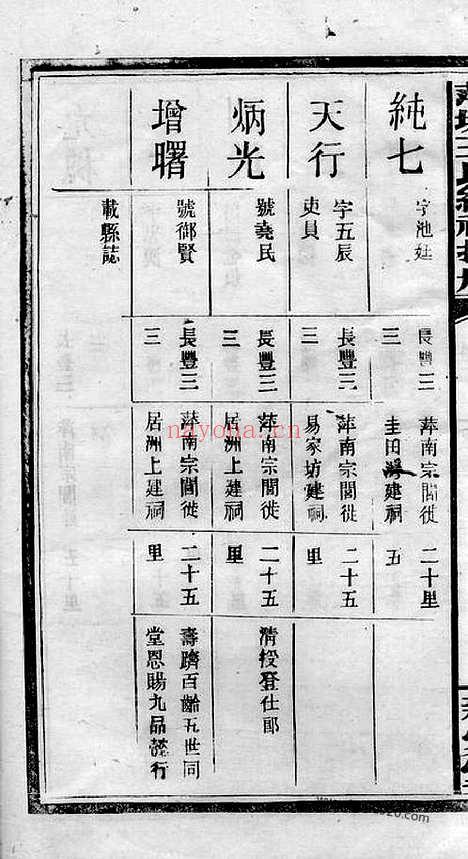 純七
字池廷
長豐三
三
萍南宗閭徙
圭田灣建祠
二十里
五
天行
字五辰
吏員
長豐三
三
萍南宗閭徙
易家坊建祠
二十五
里
炳光
號堯民
長豐三
三
萍南宗閭徙
居洲上建祠
二十五
里
清授登仕郎
增曙
號御賢
長豐三
三
萍南宗閭徙
居洲上建祠
二十五
里
壽躋百齡五世同
堂恩賜九品懿行
載縣誌
nayona.cn